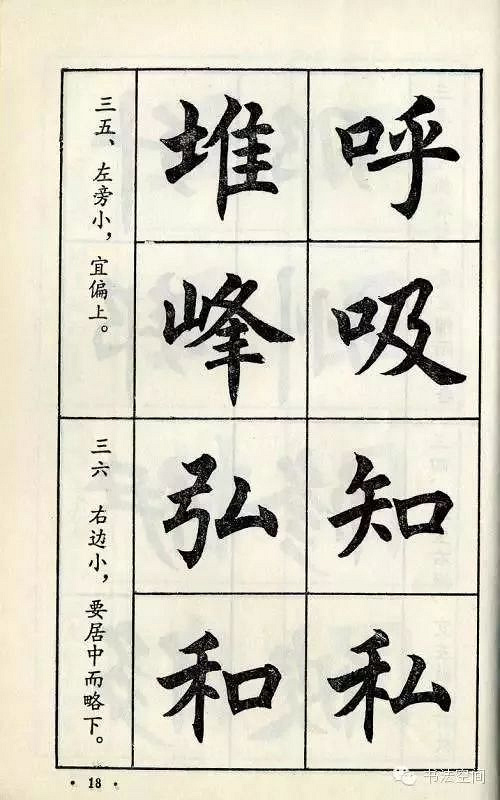 三五、左旁小，宜偏上。
堆 呼
峰 吸
三六 右边小，要居中而略下。
弘 知
和 私
· 18 ·
书法空间